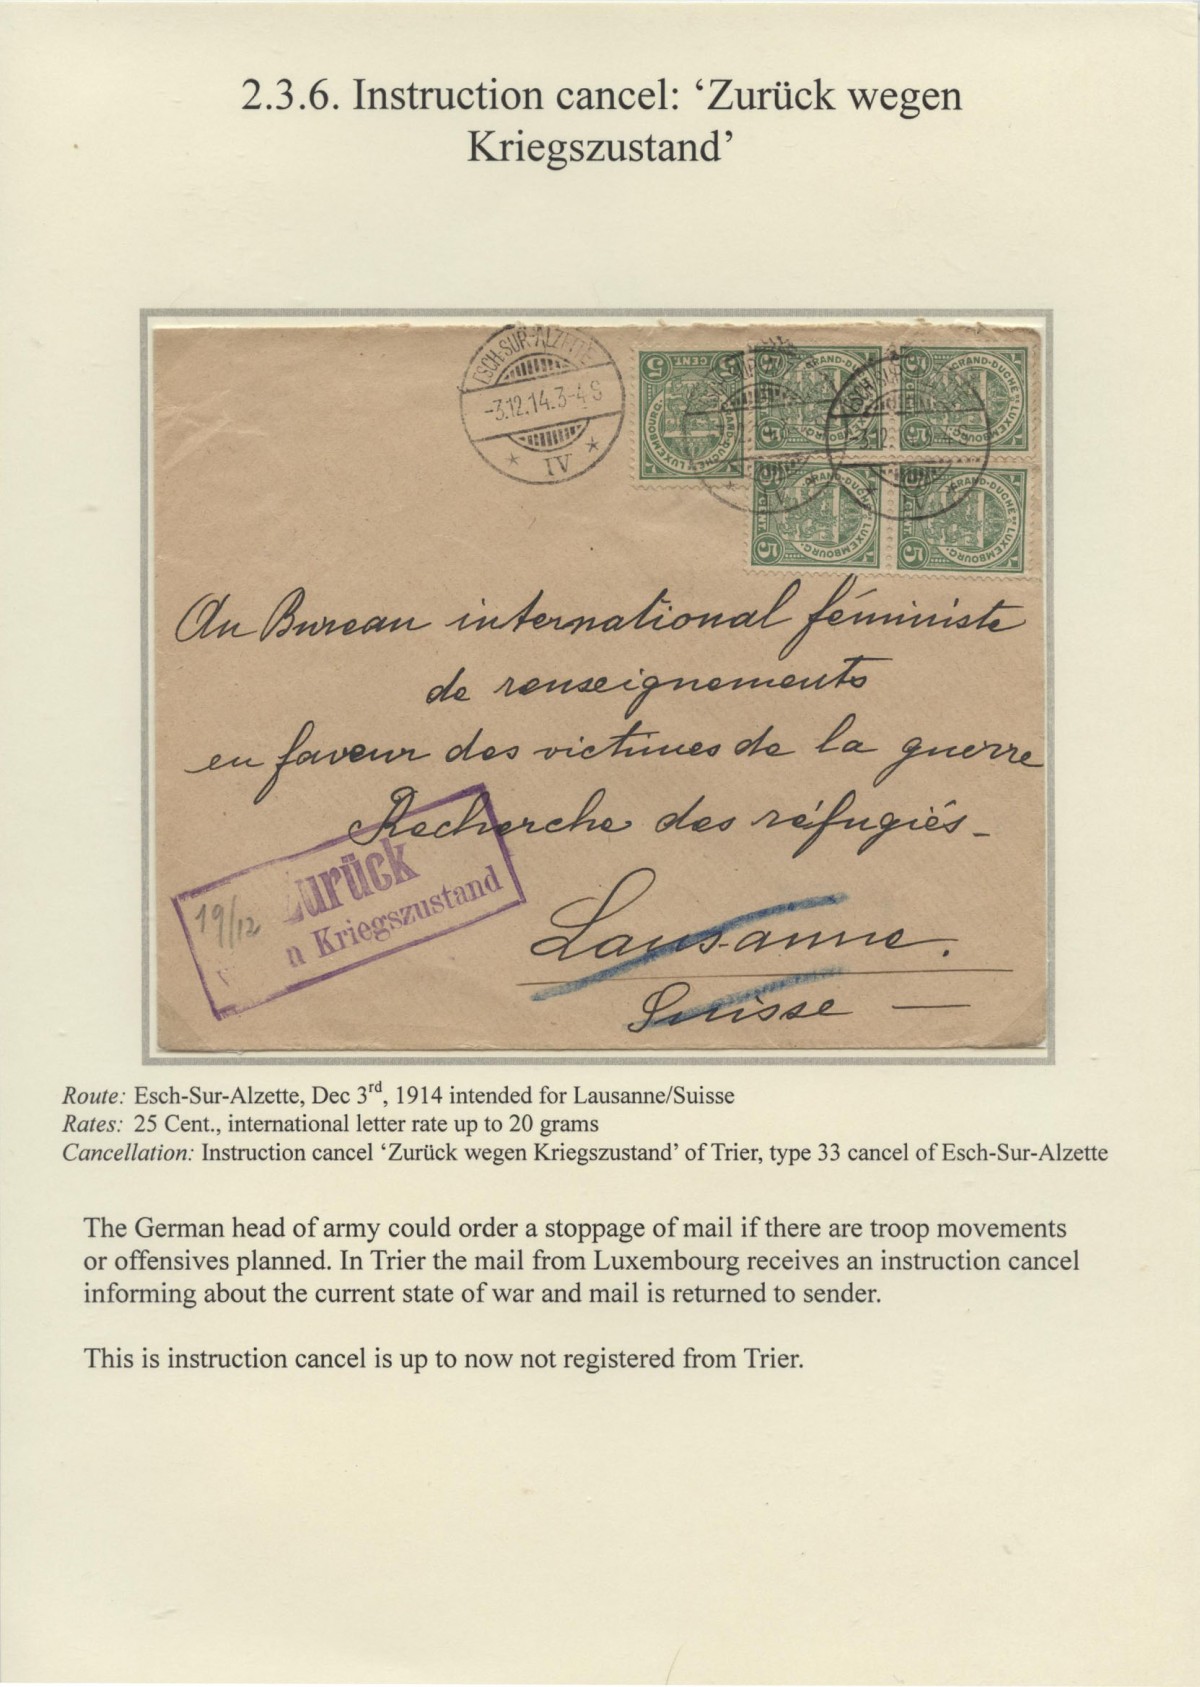 2.3.6. Instruction cancel: ‘Zurück wegen
Kriegszustand’
ESCH-SUR-ALZETTE
-3.12.14.3-4 S
IV
5 CENT. 5
GRAND-DUCHÉ DE LUXEMBOURG
GRAND-DUCHÉ DE LUXEMBOURG
GRAND-DUCHÉ DE LUXEMBOURG
GRAND-DUCHÉ DE LUXEMBOURG
GRAND-DUCHÉ DE LUXEMBOURG
Au Bureau international féministe
de renseignements
en faveur des victimes de la guerre
Recherche des réfugiés-
Lausanne.
Suisse —
Zurück
n Kriegszustand
19/12
Route: Esch-Sur-Alzette, Dec 3rd, 1914 intended for Lausanne/Suisse
Rates: 25 Cent., international letter rate up to 20 grams
Cancellation: Instruction cancel ‘Zurück wegen Kriegszustand’ of Trier, type 33 cancel of Esch-Sur-Alzette
The German head of army could order a stoppage of mail if there are troop movements
or offensives planned. In Trier the mail from Luxembourg receives an instruction cancel
informing about the current state of war and mail is returned to sender.
This is instruction cancel is up to now not registered from Trier.